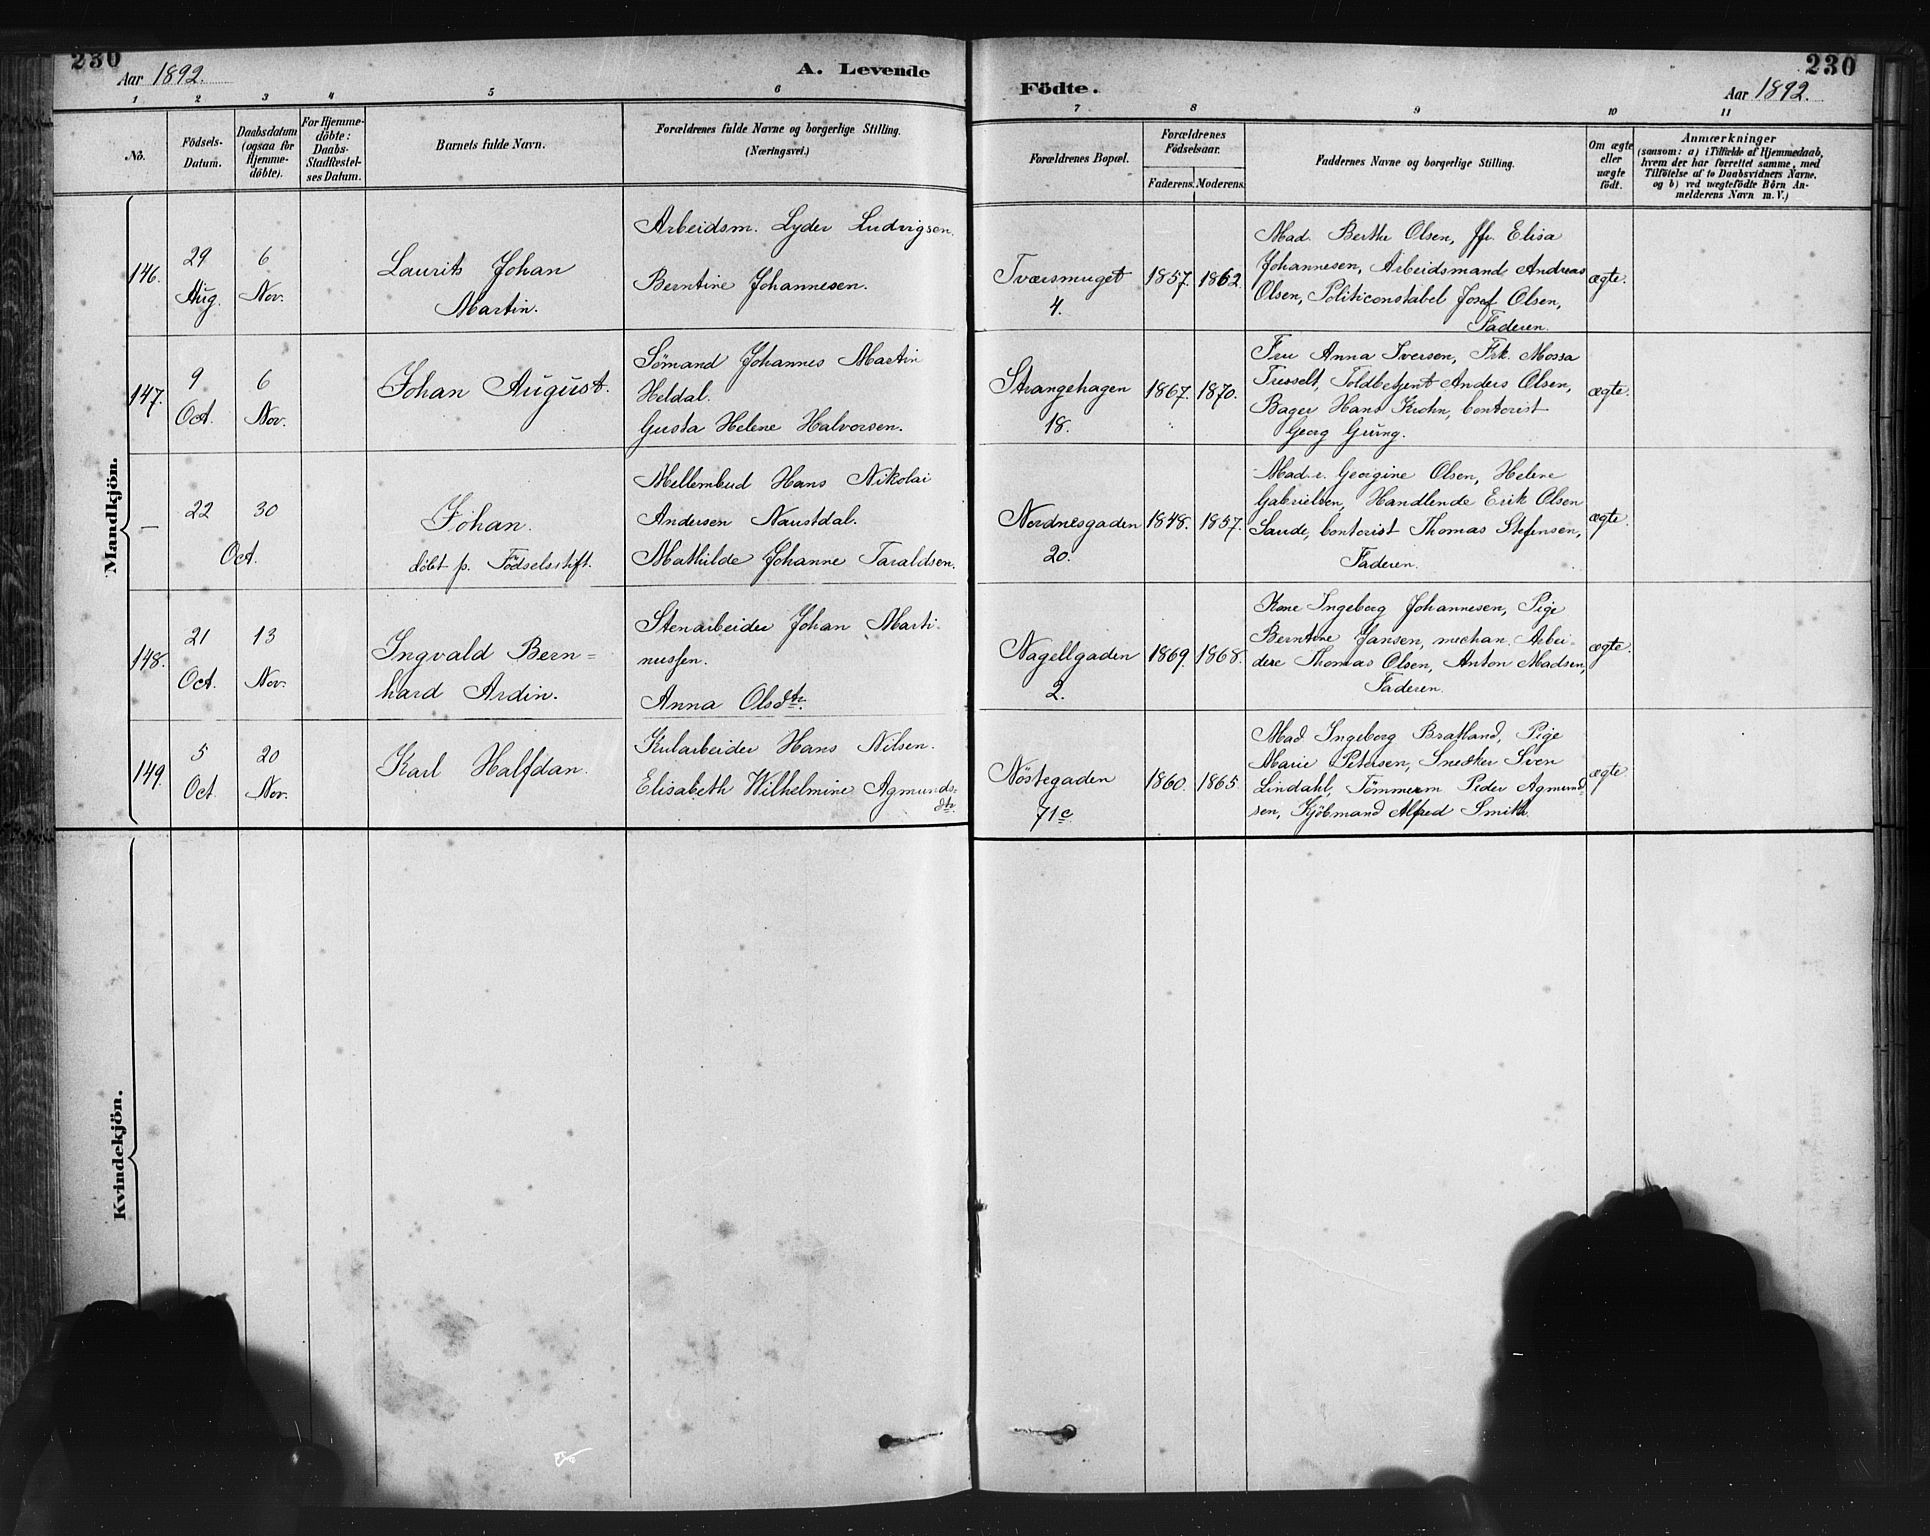 230
Aar 1892.
A. Levende
Födte.
230
Aar 1892.
1 2 3 4 5 6 7 8 9 10 11
No.
Födsels-
Datum.
Daabsdatum
(ogsaa for
Hjemme-
döbte).
For Hjemme-
döbte:
Daabs-
Stadfæstel-
ses Datum.
Barnets fulde Navn.
Forældrenes fulde Navne og borgerlige Stilling.
(Næringsvei.)
Forældrenes Bopæl.
Forældrenes
Födselsaar.
Faderens. Moderens.
Faddernes Navne og borgerlige Stilling.
Om ægte
eller
uægte
födt.
Anmærkninger
(saasom: a) i Tilfælde af Hjemmedaab,
hvem der har forrettet samme, med
Tilföielse af to Daabsvidners Navne,
og b) ved uægtefödte Börn An-
melderens Navn m. V.)
Mandkjön.
146.
29
Aug.
6
Nov.
Laurits Johan
Martin.
Arbeidsm. Lyder Ludvigsen.
Berntine Johannesen.
Tværsmuget
4.
1857. 1862.
Mad. Berthe Olsen, Jfr. Elisa
Johannesen, Arbeidsmand Andreas
Olsen, Politiconstabel Josef Olsen,
Faderen.
ægte.
147.
9
Oct.
6
Nov.
Johan August.
Sömand Johannes Martin
Heldal.
Gusta Helene Halvorsen.
Strangehagen
18.
1867. 1870.
Fru Anna Iversen, Frk. Mossa
Tresselt, Toldbetjent Anders Olsen,
Bager Hans Krohn, Contorist
Georg
ægte.
—
22
30
Oct.
Johan.
döbt p. Födselsstift.
Mellembud Hans Nikolai
Andersen Naustdal.
Mathilde Johanne Taraldsen.
Nordnesgaden
20.
1848. 1857.
Mad. Georgine Olsen, Helene
Gabrielsen, Handlende Erik Olsen
Saude, Contorist Thomas Stefensen,
Faderen.
ægte.
148.
21
Oct.
13
Nov.
Ingvald Bern=
hard Ardin.
Stenarbeider Johan Marti-
nussen.
Anna Olsdtr.
Nagellgaden
2.
1869. 1868.
Kone Ingeborg Johannesen, Pige
Berntine Jansen, mechan. Arbei-
dere Thomas Olsen, Anton Madsen,
Faderen.
ægte.
149.
5
Oct.
20
Nov.
Karl Halfdan.
Kularbeider Hans Nilsen.
Elisabeth Wilhelmine Agmunds-
dtr.
Nöstegaden
71c.
1860. 1865
Mad Ingeborg Bratland, Pige
Marie Petersen, Snedker Sven
Lindahl, Tömmerm Peder Agmund-
sen, Kjöbmand Alfred Smith.
ægte.
Kvindekjön.